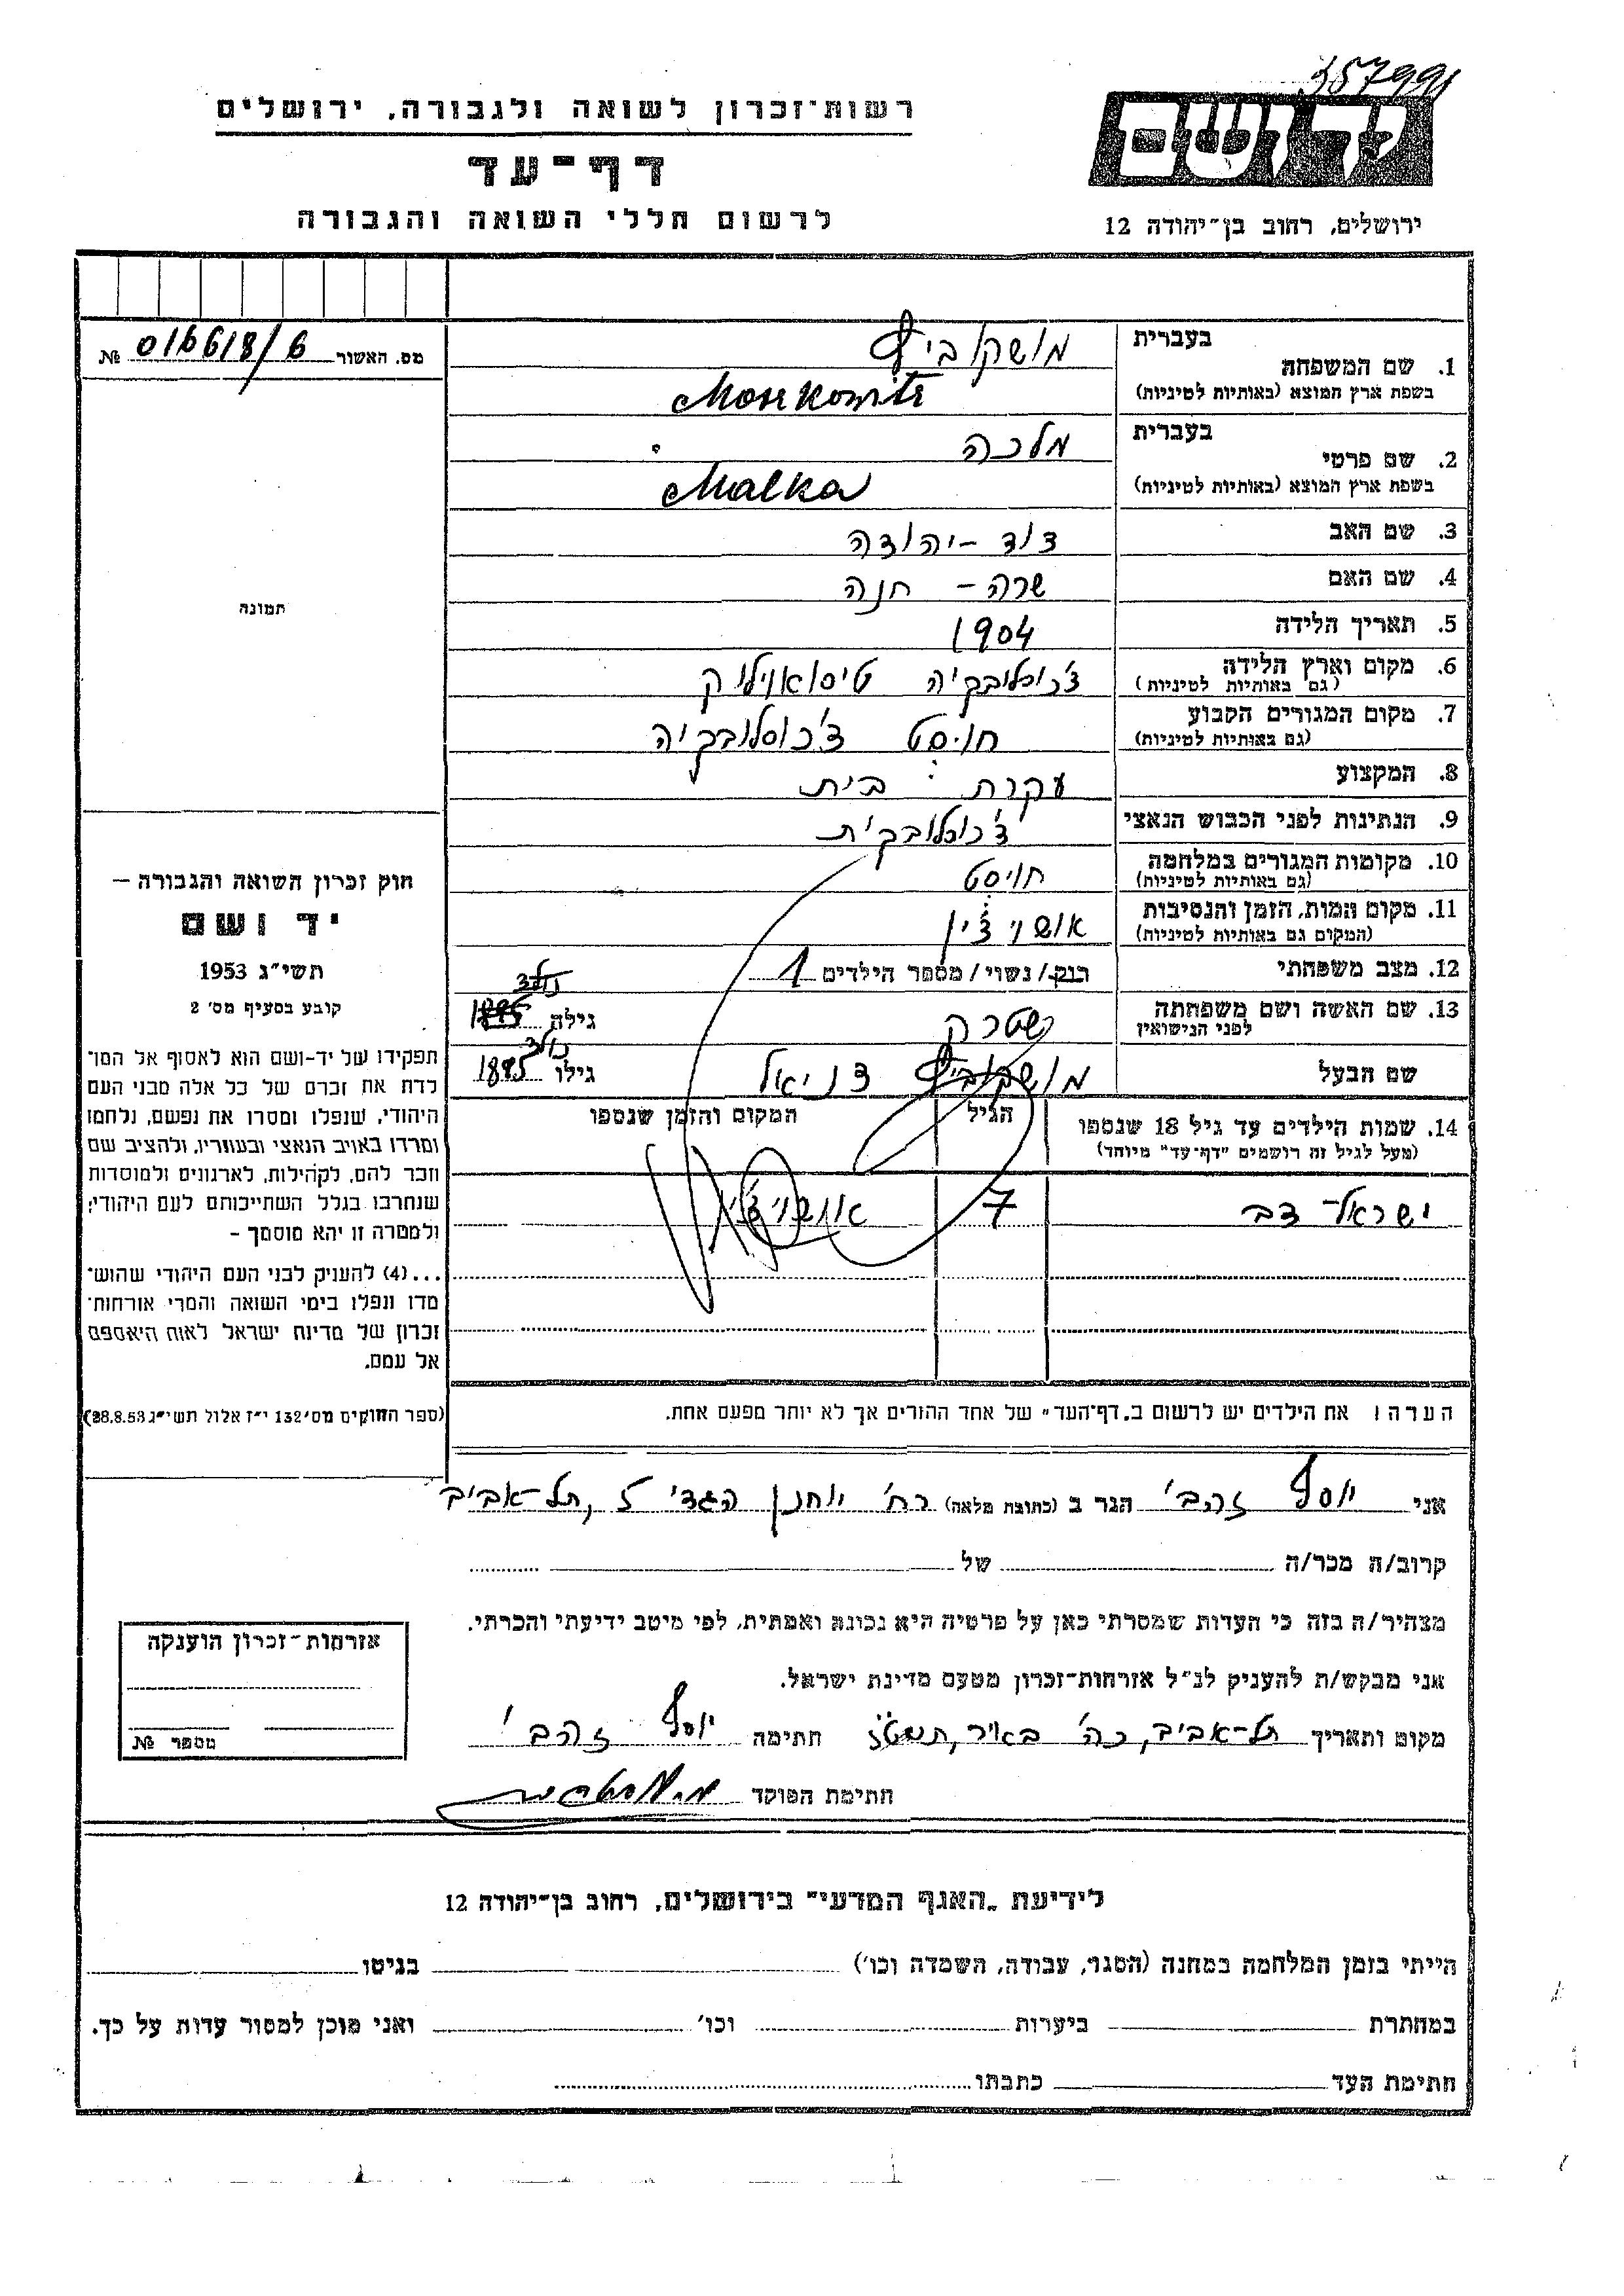 357991
רשות־זכרון לשואה ולגבורה, ירושלים
דף־עד
לרשום חללי השואה והגבורה
יד ושם
ירושלים, רחוב בן־יהודה 12
מס. האשור 016618/6 №
תמונה
בעברית מושקוביץ
1. שם המשפחה
בשפת ארץ המוצא (באותיות לטיניות) Moskowits
בעברית מלכה
2. שם פרטי
בשפת ארץ המוצא (באותיות לטיניות) Malka
3. שם האב דוד - יהודה
4. שם האם שרה - חנה
5. תאריך הלידה 1904
6. מקום וארץ הלידה צ'כוסלובקיה
(גם באותיות לטיניות)
7. מקום המגורים הקבוע חוסט צ'כוסלובקיה
(גם באותיות לטיניות)
8. המקצוע עקרת בית
9. הנתינות לפני הכבוש הנאצי צ'כוסלובקית
10. מקומות המגורים במלחמה חוסט
(גם באותיות לטיניות)
11. מקום המות, הזמן והנסיבות
(המקום גם באותיות לטיניות)
12. מצב משפחתי רווק/נשוי/מספר הילדים 1
13. שם האשה ושם משפחתה גילה
לפני הנישואין
שם הבעל מושקוביץ דניאל גילו נולד 1895
14. שמות הילדים עד גיל 18 שנספו הגיל המקום והזמן שנספו
(מעל לגיל זה רושמים "דף־עד" מיוחד)
ישראל - דב 7
הערה: את הילדים יש לרשום ב„דף־העד" של אחד ההורים אך לא יותר מפעם אחת.
חוק זכרון השואה והגבורה –
יד ושם
תשי"ג 1953
קובע בסעיף מס' 2
תפקידו של יד־ושם הוא לאסוף אל המו־
לדת את זכרם של כל אלה מבני העם
היהודי, שנפלו ומסרו את נפשם, נלחמו
ומרדו באויב הנאצי ובעוזריו, ולהציב שם
וזכר להם, לקהילות, לארגונים ולמוסדות
שנחרבו בגלל השתייכותם לעם היהודי;
ולמטרה זו יהא מוסמך –
...(4) להעניק לבני העם היהודי שהוש־
מדו ונפלו בימי השואה והמרי אזרחות־
זכרון של מדינת ישראל לאות היאספם
אל עמם.
(ספר החוקים מס' 132 י"ז אלול תשי"ג 28.8.53)
אני יוסף זהבי הגר ב (כתובת מלאה) רח' יוחנן הגדי 5, תל-אביב
קרוב/ה מכר/ה של
מצהיר/ה בזה כי העדות שמסרתי כאן על פרטיה היא נכונה ואמתית, לפי מיטב ידיעתי והכרתי.
אני מבקש/ת להעניק לנ"ל אזרחות־זכרון מטעם מדינת ישראל.
מקום ותאריך תל-אביב, כה' באייר, תשט"ז חתימה יוסף זהבי
חתימת הפוקד
אזרחות־זכרון הוענקה
מספר №
לידיעת „האגף המדעי" בירושלים, רחוב בן־יהודה 12
הייתי בזמן המלחמה במחנה (הסגר, עבודה, השמדה וכו') בגיטו
במחתרת ביערות וכו' ואני מוכן למסור עדות על כך.
חתימת העד כתבתו